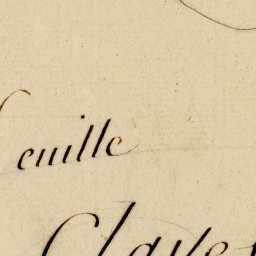 euille
Claye